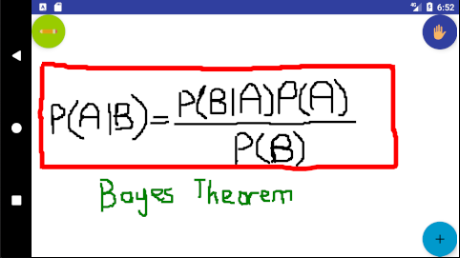 6:52
P(A|B)=P(B|A)P(A)/P(B)
Bayes Theorem